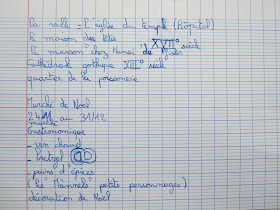 La ville = l'église du temple (hôpital)
la maison des têtes
la maison chez Hansi de XVII° siècle
Cathédrale gothique XIII° siècle
quartier de la poissonerie
Marché de Noël
24/11 au 31/12
Gastronomique
- vin chaud
- Bretzel
pains d'épices
(les "Männels" petits personnages)
décoration de Noël